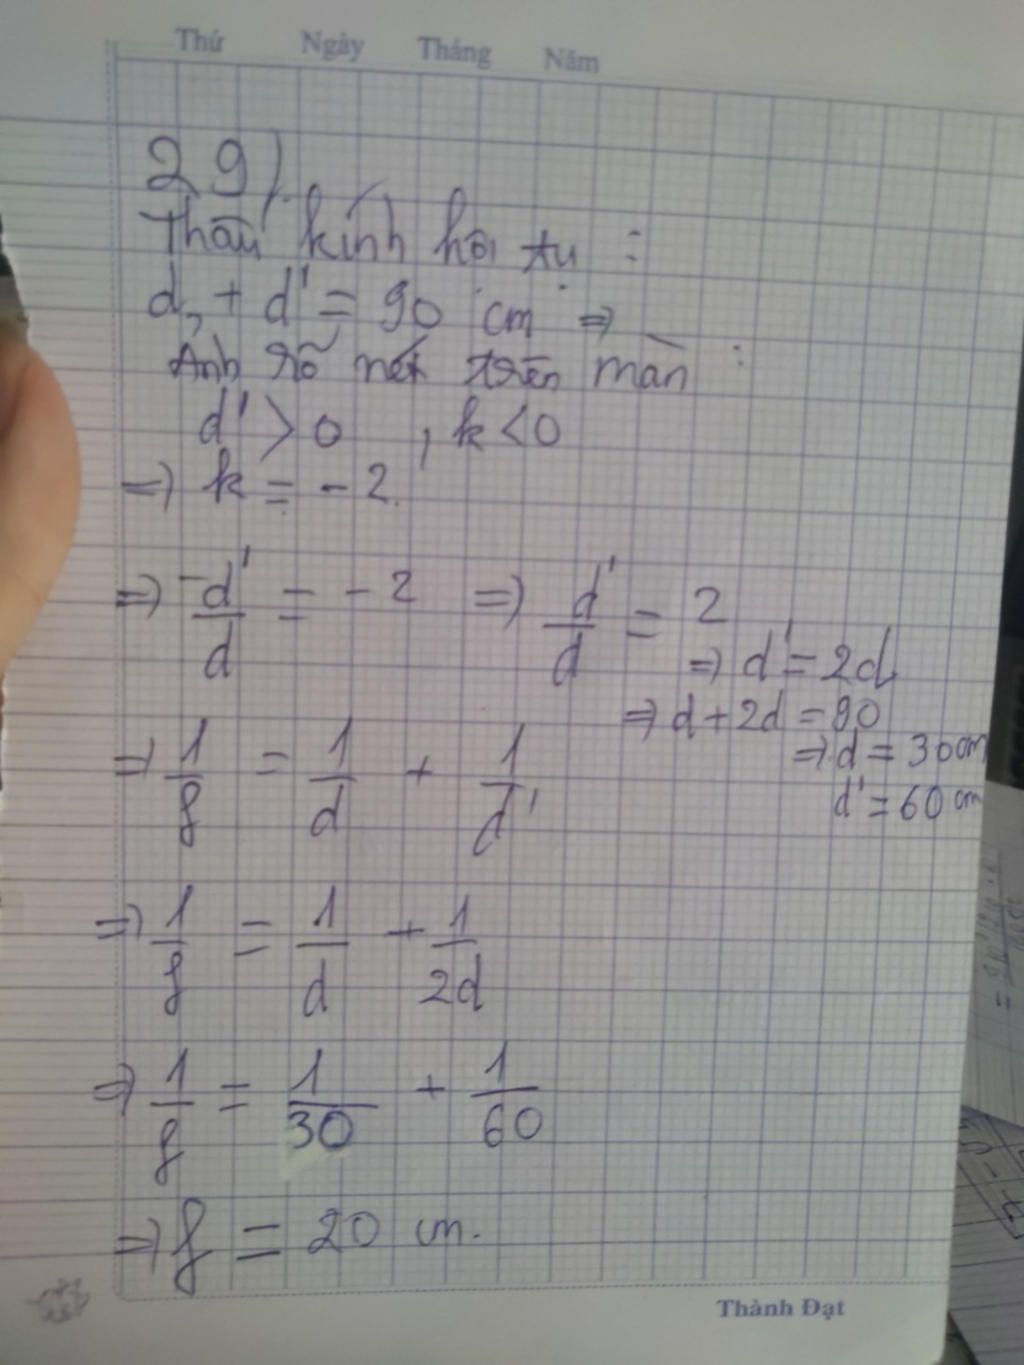 Thứ Ngày Tháng Năm
29).
Thấu kính hội tụ :
d + d' = 90 cm ⇒
Ảnh rõ nét trên màn :
d' > 0 , k < 0
⇒ k = - 2.
⇒ -d'/d = - 2 ⇒ d'/d = 2
⇒ d' = 2d
⇒ d + 2d = 90
⇒ d = 30 cm
d' = 60 cm
⇒ 1/f = 1/d + 1/d'
⇒ 1/f = 1/d + 1/2d
⇒ 1/f = 1/30 + 1/60
⇒ f = 20 cm.
Thành Đạt